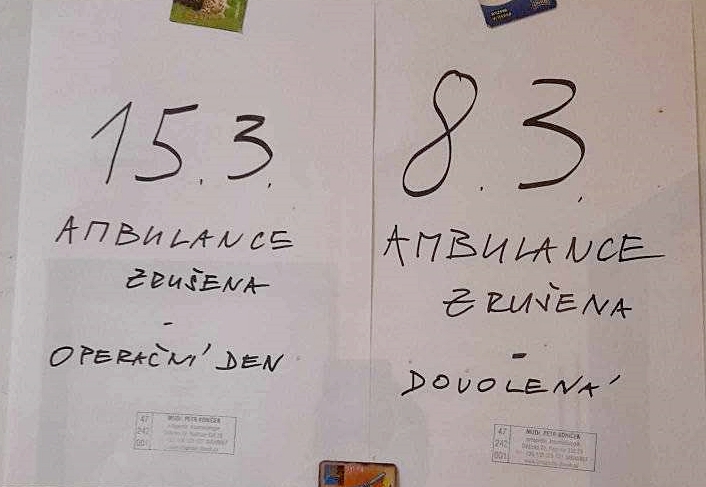 15.3.
AMBULANCE
ZRUŠENA
-
OPERAČNÍ DEN
47
242
001
MUDr. PETR
8.3.
AMBULANCE
ZRUŠENA
-
DOVOLENÁ
47
242
001
MUDr. PETR